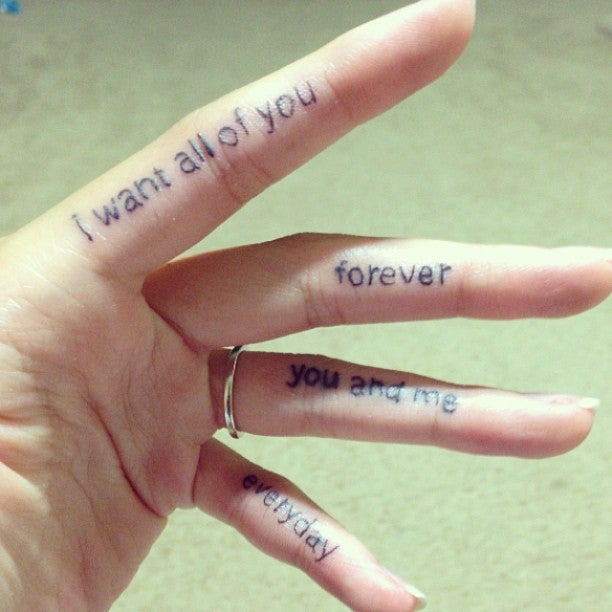 i want all of you
forever
you and me
everyday